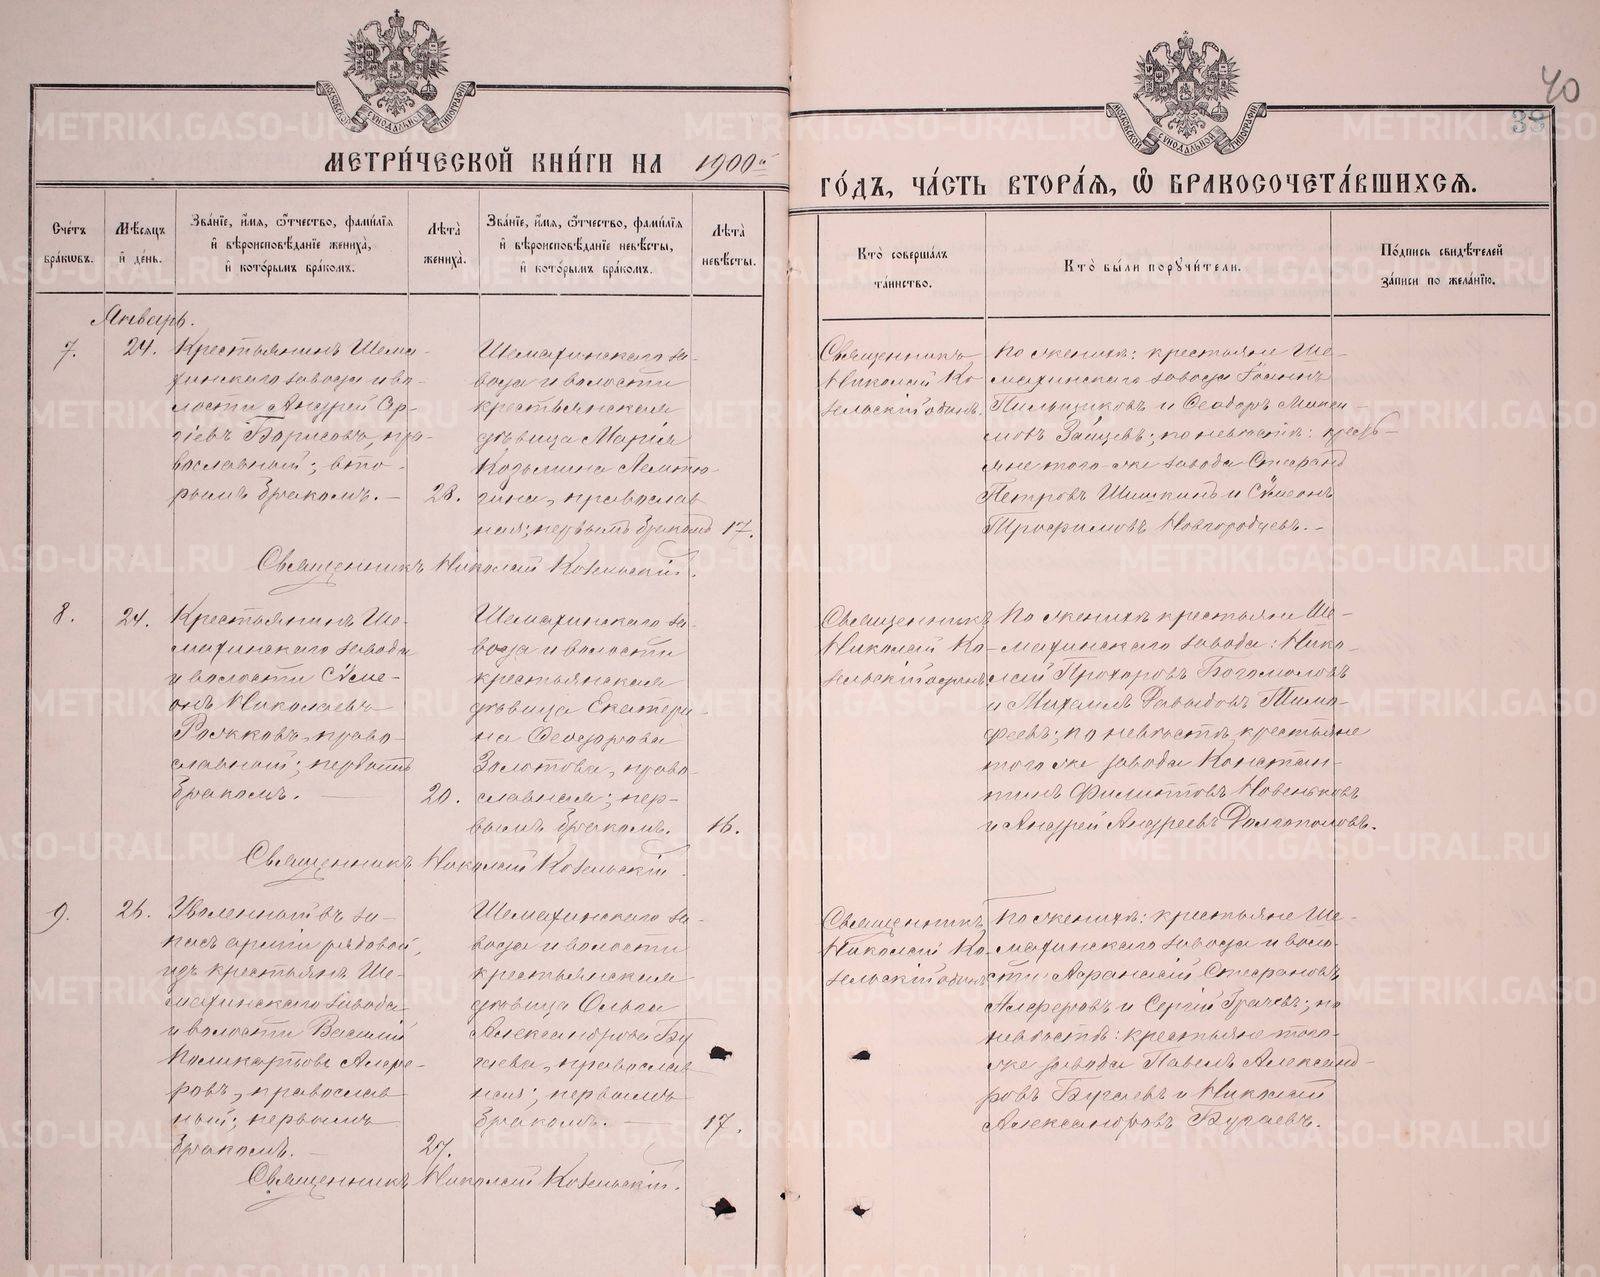 МЕТРИ́ЧЕСКОЙ КНИ́ГИ НА 1900й
ГО́ДЪ, ЧА́СТЬ ВТОРА́Я, Ѿ БРАКОСОЧЕТА́ВШИХСЯ.
40
39
Сче́тъ бра́кѡвъ.
Мѣ́сяцъ и҆ де́нь.
Зва́нїе, и҆́мя, ѻ҆́тчество, фами́лїя
и҆ вѣроисповѣ́данїе жениха̀,
и҆ кото́рымъ бра́комъ.
Лѣ́та жениха̀.
Зва́нїе, и҆́мя, ѻ҆́тчество, фами́лїя
и҆ вѣроисповѣ́данїе невѣ́сты,
и҆ кото́рымъ бра́комъ.
Лѣ́та невѣ́сты.
Кто̀ соверша́лъ
та́инство.
Кто̀ бы́ли порꙋчи́тели.
По́дпись свидѣ́телей
за́писи по жела́нїю.
Январь.
7.
24.
Крестьянинъ Шема-
хинскаго завода и во-
лости Андрей Сер-
гіевъ Борисовъ, пра-
вославный; вто-
рымъ бракомъ. —
28.
Шемахинскаго за-
вода и волости
крестьянская
дѣвица Марія
Козьмина Лемтю-
гина, православ
ная; первымъ бракомъ
17.
Священникъ
Николай Ко-
зельскій одинъ.
По женихѣ: крестьяне Ше-
махинскаго завода Іоаннъ
Пильщиковъ и Ѳеодоръ Макси-
мовъ Зайцевъ; по невѣстѣ: кресть-
яне того-же завода Стефанъ
Петровъ Шишкинъ и Сѵмеонъ
Трофимовъ Новгородцевъ. —
Священникъ Николай Козельскій.
8.
24.
Крестьянинъ Ше-
махинскаго завода
и волости Сѵме-
онъ Николаевъ
Рожковъ, право-
славный; первымъ
бракомъ. —
20.
Шемахинскаго за-
вода и волости
крестьянская
дѣвица Екатери-
на Ѳеодорова
Золотова, право-
славная; пер-
вымъ бракомъ.
16.
Священникъ
Николай Ко-
зельскій одинъ.
По женихѣ крестьяне Ше-
махинскаго завода: Нико-
лай Прохоровъ Богомоловъ
и Михаилъ Давыдовъ Тимо-
феевъ; по невѣстѣ, крестьяне
того же завода Констан-
тинъ Филипповъ Новеньковъ
и Андрей Андреевъ Долгополовъ.
Священникъ Николай Козельскій.
9.
26.
Уволенный въ за-
пасъ арміи рядовой,
изъ крестьянъ Ше-
махинскаго завода
и волости Василій
Поликарповъ Алфе-
ровъ, православ
ный; первымъ
бракомъ. —
27.
Шемахинскаго за-
вода и волости
крестьянская
дѣвица Ольга
Александрова Бу
гаева, православ
ная; первымъ
бракомъ. —
17.
Священникъ
Николай Ко-
зельскій одинъ
По женихѣ: крестьяне Ше-
махинскаго завода и воло-
сти Аѳанасій Стефановъ
Алферовъ и Сергій Грачевъ; по
невѣстѣ: крестьяне того-
же завода Павелъ Александ-
ровъ Бугаевъ и Николай
Александровъ Бугаевъ.
Священникъ Николай Козельскій.
METRIKI.GASO-URAL.RU